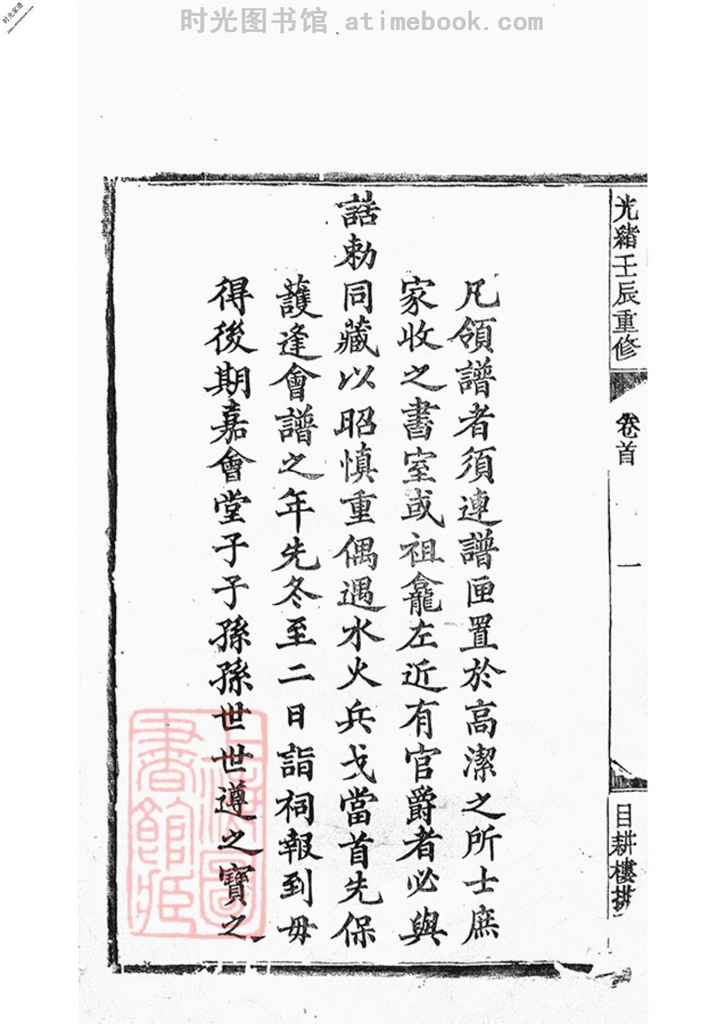 时光图书馆 atimebook.com
光緒壬辰重修
卷首
一
目耕樓
凡領譜者須連譜匣置於高潔之所士庶
家收之書室或祖龕左近有官爵者必與
誥勅同藏以昭慎重偶遇水火兵戈當首先保
護逢會譜之年先冬至二日詣祠報到毋
得後期嘉會堂子子孫孫世世遵之寶之
上海圖
書館藏